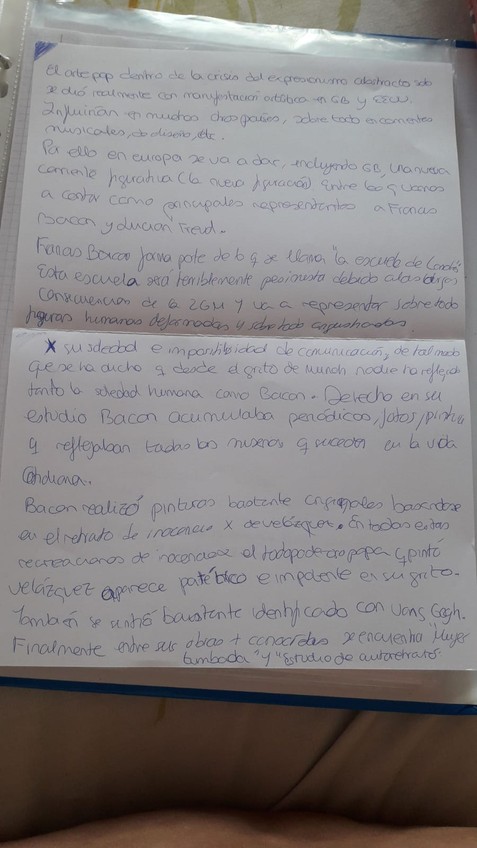 El arte pop dentro de la crisis del expresionismo abstracto solo
se dió realmente con manifestación artística en GB y EEUU.
Influirían en muchos otros países, sobre todo en corrientes
musicales, de diseño, etc.
Por ello en europa se va a dar, incluyendo GB, una nueva
corriente figurativa (la nueva figuración) Entre los q vamos
a contar como principales representantes a Francis
Bacon y Lucian Freud.
Francis Bacon forma parte de lo q se llama "la escuela de Londres"
Esta escuela será terriblemente pesimista debido a las
consecuencias de la 2GM y va a representar sobre todo
figuras humanas deformadas y sobre todo angustiadas.
x su soledad e imposibilidad de comunicación, de tal modo
que se ha dicho q desde el grito de Munch nadie ha reflejado
tanto la soledad humana como Bacon. De hecho en su
estudio Bacon acumulaba periódicos, fotos, pinturas
q reflejaban todas las miserias q suceden en la vida
cotidiana.
Bacon realizó pinturas bastante originales basándose
en el retrato de inocencio X de velázquez. En todas estas
recreaciones de inocencio x el todopoderoso papa q pintó
Velázquez aparece patético e impotente en su grito.
También se sintió bastante identificado con Vang Gogh.
Finalmente entre sus obras + conocidas se encuentra "Mujer
tumbada" y "Estudio de autorretrato"